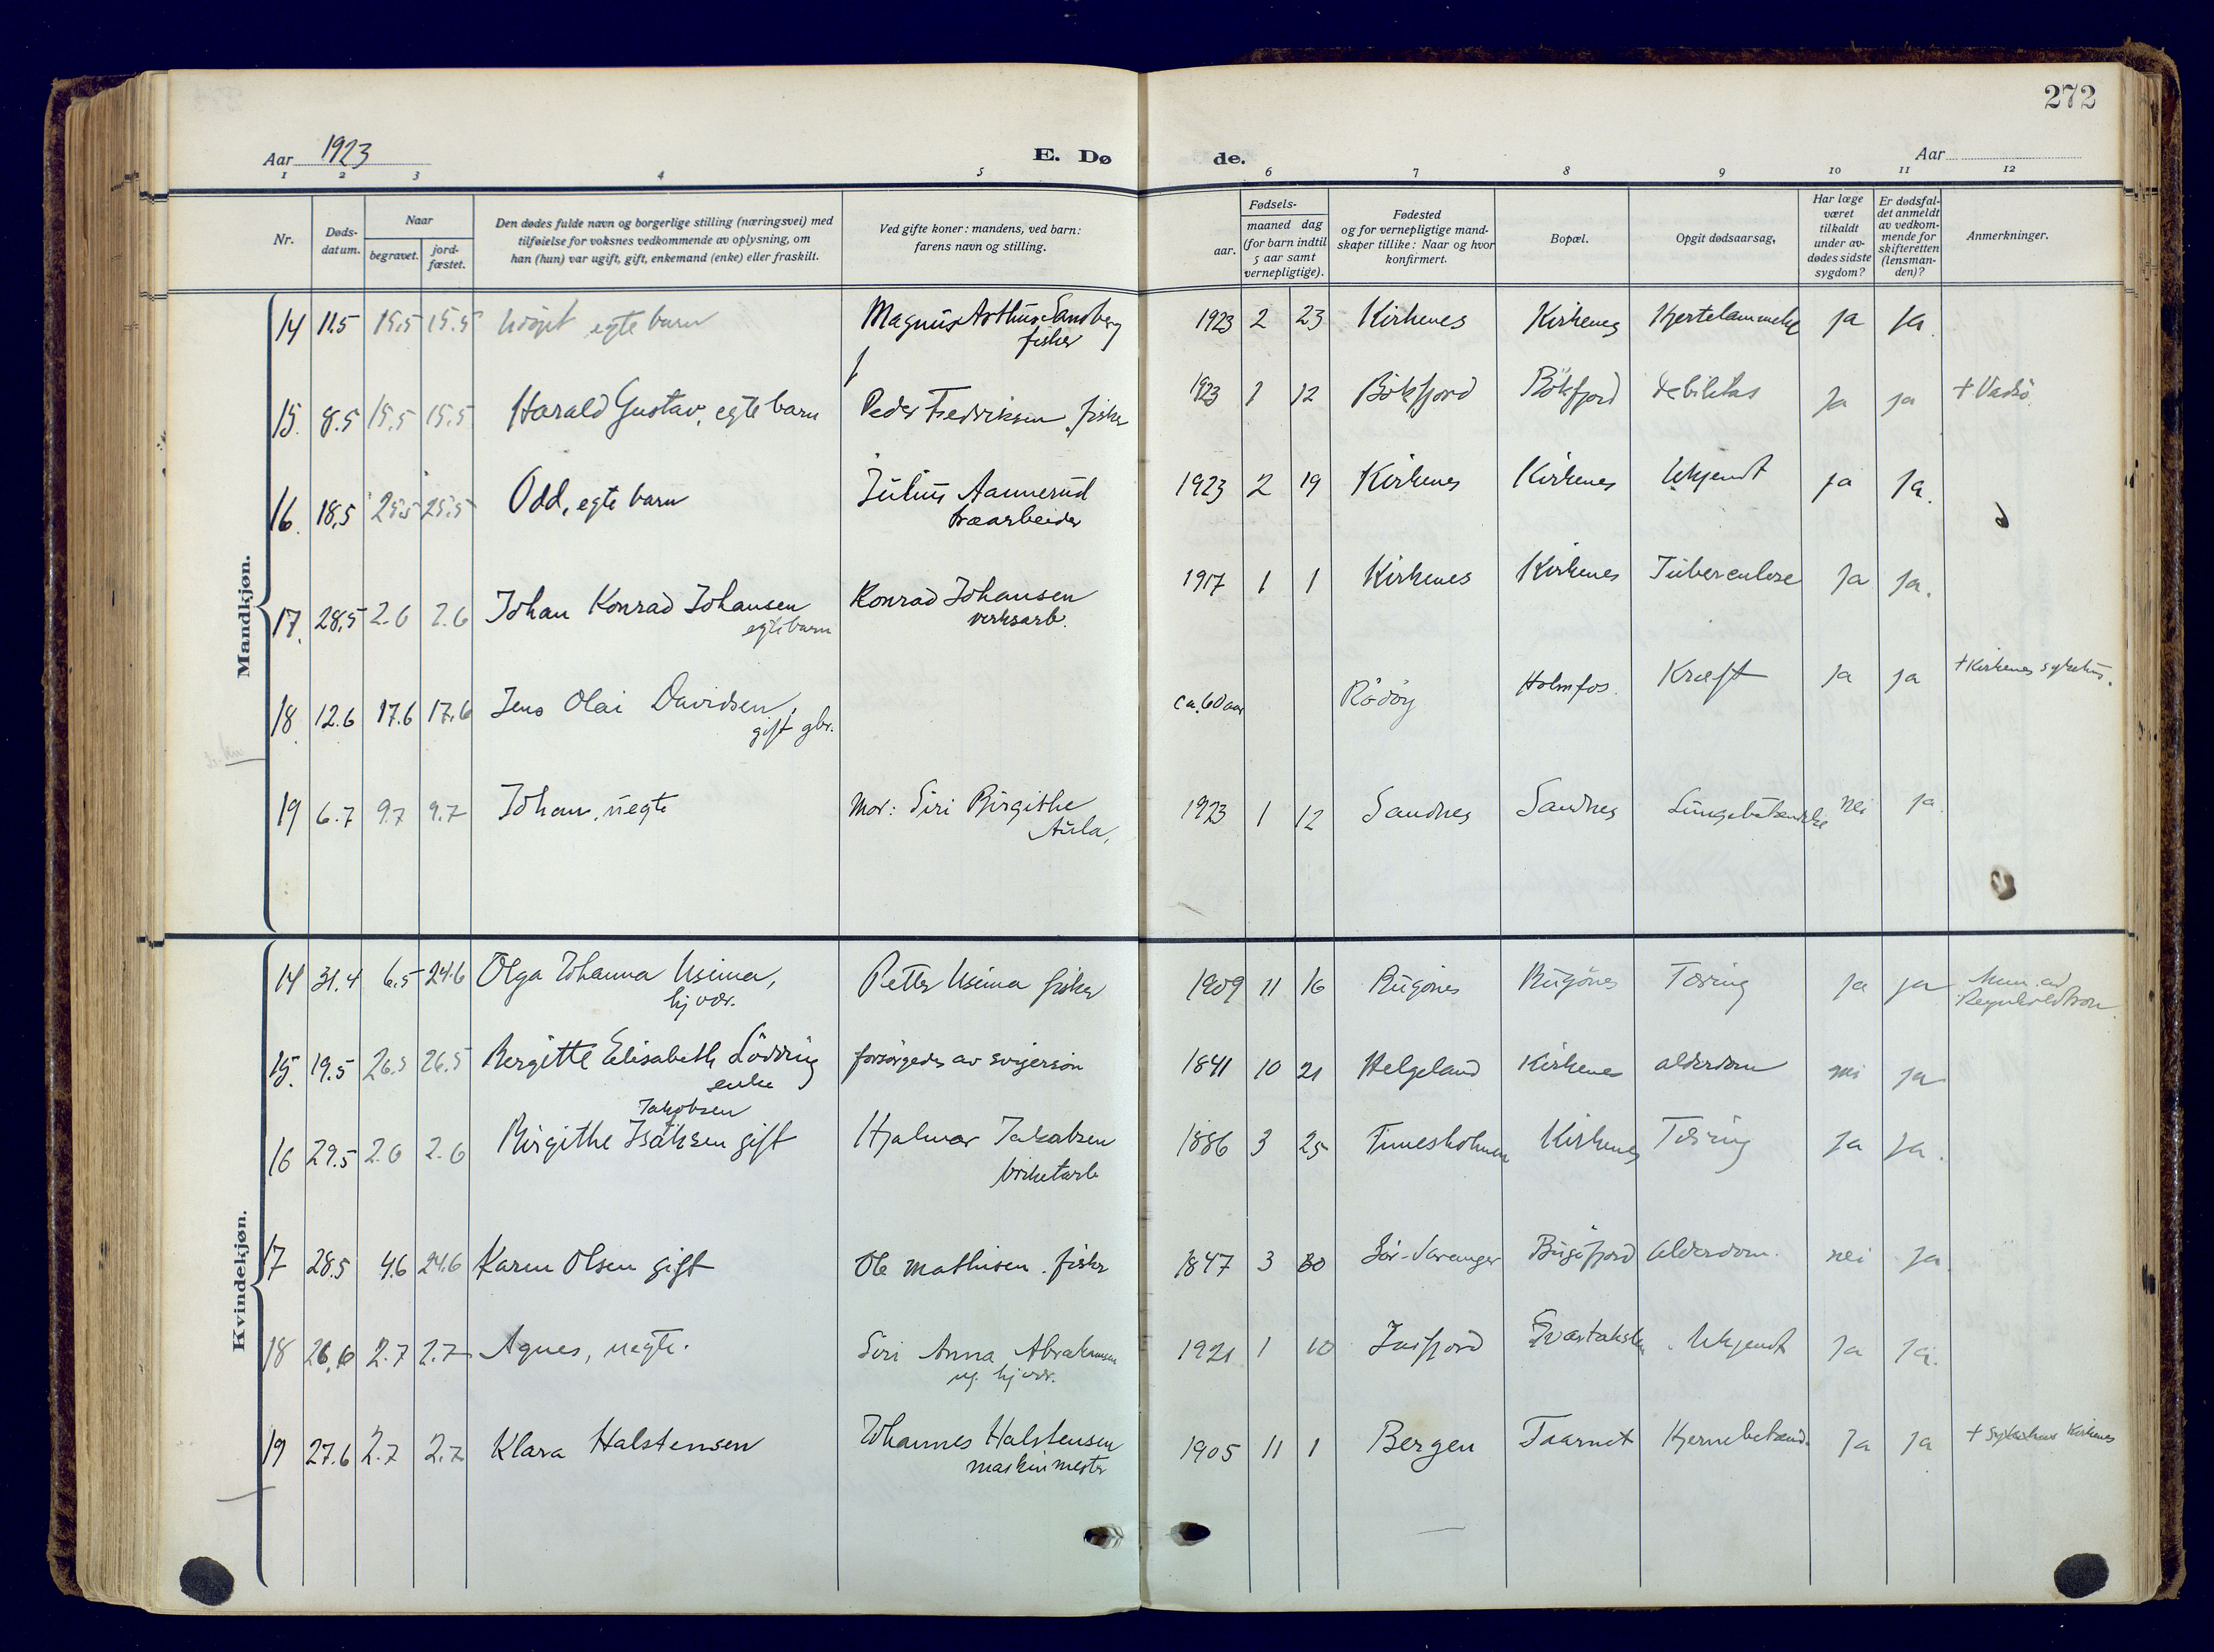 272
Aar 1923
E. Dø
de.
Aar
1 2 3 4 5 6 7 8 9 10 11 12
Nr.
Døds-
datum.
Naar
begravet.
jord-
fæstet.
Den dødes fulde navn og borgerlige stilling (næringsvei) med
tilføielse for voksnes vedkommende av oplysning, om
han (hun) var ugift, gift, enkemand (enke) eller fraskilt.
Ved gifte koner: mandens, ved barn:
farens navn og stilling.
Fødsels-
aar.
maaned dag
(for barn indtil
5 aar samt
vernepligtige).
Fødested
og for vernepligtige mand-
skaper tillike: Naar og hvor
konfirmert.
Bopæl.
Opgit dødsaarsag.
Har læge
været
tilkaldt
under av-
dødes sidste
sygdom?
Er dødsfal-
det anmeldt
av vedkom-
mende for
skifteretten
(lensman-
den)?
Anmerkninger.
Mandkjøn.
14 11.5 15.5 15.5 egte barn Magnus Arthur Sandberg 1923 2 23 Kirkenes Kirkenes Hjertelammelse ja ja.
fisker
15. 8.5 15.5 15.5 Harald Gustav, egte barn Peder Fredriksen, fisker 1923 1 12 Bökfjord Bökfjord debilitas ja ja + Vadsö
16. 18.5 25.5 25.5 Odd, egte barn Julius Aannerud 1923 2 19 Kirkenes Kirkenes Ukjendt ja ja.
træarbeider
17. 28.5 2.6 2.6 Johan Konrad Johansen Konrad Johansen 1917 1 1 Kirkenes Kirkenes Tuberculose ja ja.
egte barn verksarb.
18. 12.6 17.6 17.6 Jens Olai Davidsen, ca. 60 aar Rödöy Holmfos. Kræft ja ja + Kirkenes sykehus.
gift gbr.
19 6.7 9.7 9.7 Johan, uegte Mor: Siri Birgithe 1923 1 12 Sandnes Sandnes Lungebetændelse nei ja.
Aula,
Kvindekjøn.
14 31.4 6.5 24.6 Olga Johanna Useima, Petter Useima fisker 1909 11 16 Bugönes Bugönes Tæring ja ja
hj vær.
15. 19.5 26.5 26.5 Bergitte Elisabeth Lödding forsörgedes av svigersön 1841 10 21 Helgeland Kirkenes alderdom nei ja
enke
Jakobsen
16 29.5 2.6 2.6 Birgithe Isaksen gift Hjalmar Jakobsen 1886 3 25 Finnesholmen Kirkenes Tæring ja ja.
briketarb
17 28.5 4.6 24.6 Karen Olsen gift Ole Mathisen. fisker 1847 3 30 Sör-Varanger Bugöfjord alderdom. nei ja.
18 26.6 2.7 2.7 Agnes, uegte. Siri Anna Abrahamsen 1921 1 10 Ukjendt ja ja.
ug. hj vær.
19 27.6 2.7 2.7 Klara Halstensen Johannes Halstensen 1905 11 1 Bergen Taarnet Hjernebetænd. ja ja + Sykehus Kirkenes
maskinmester